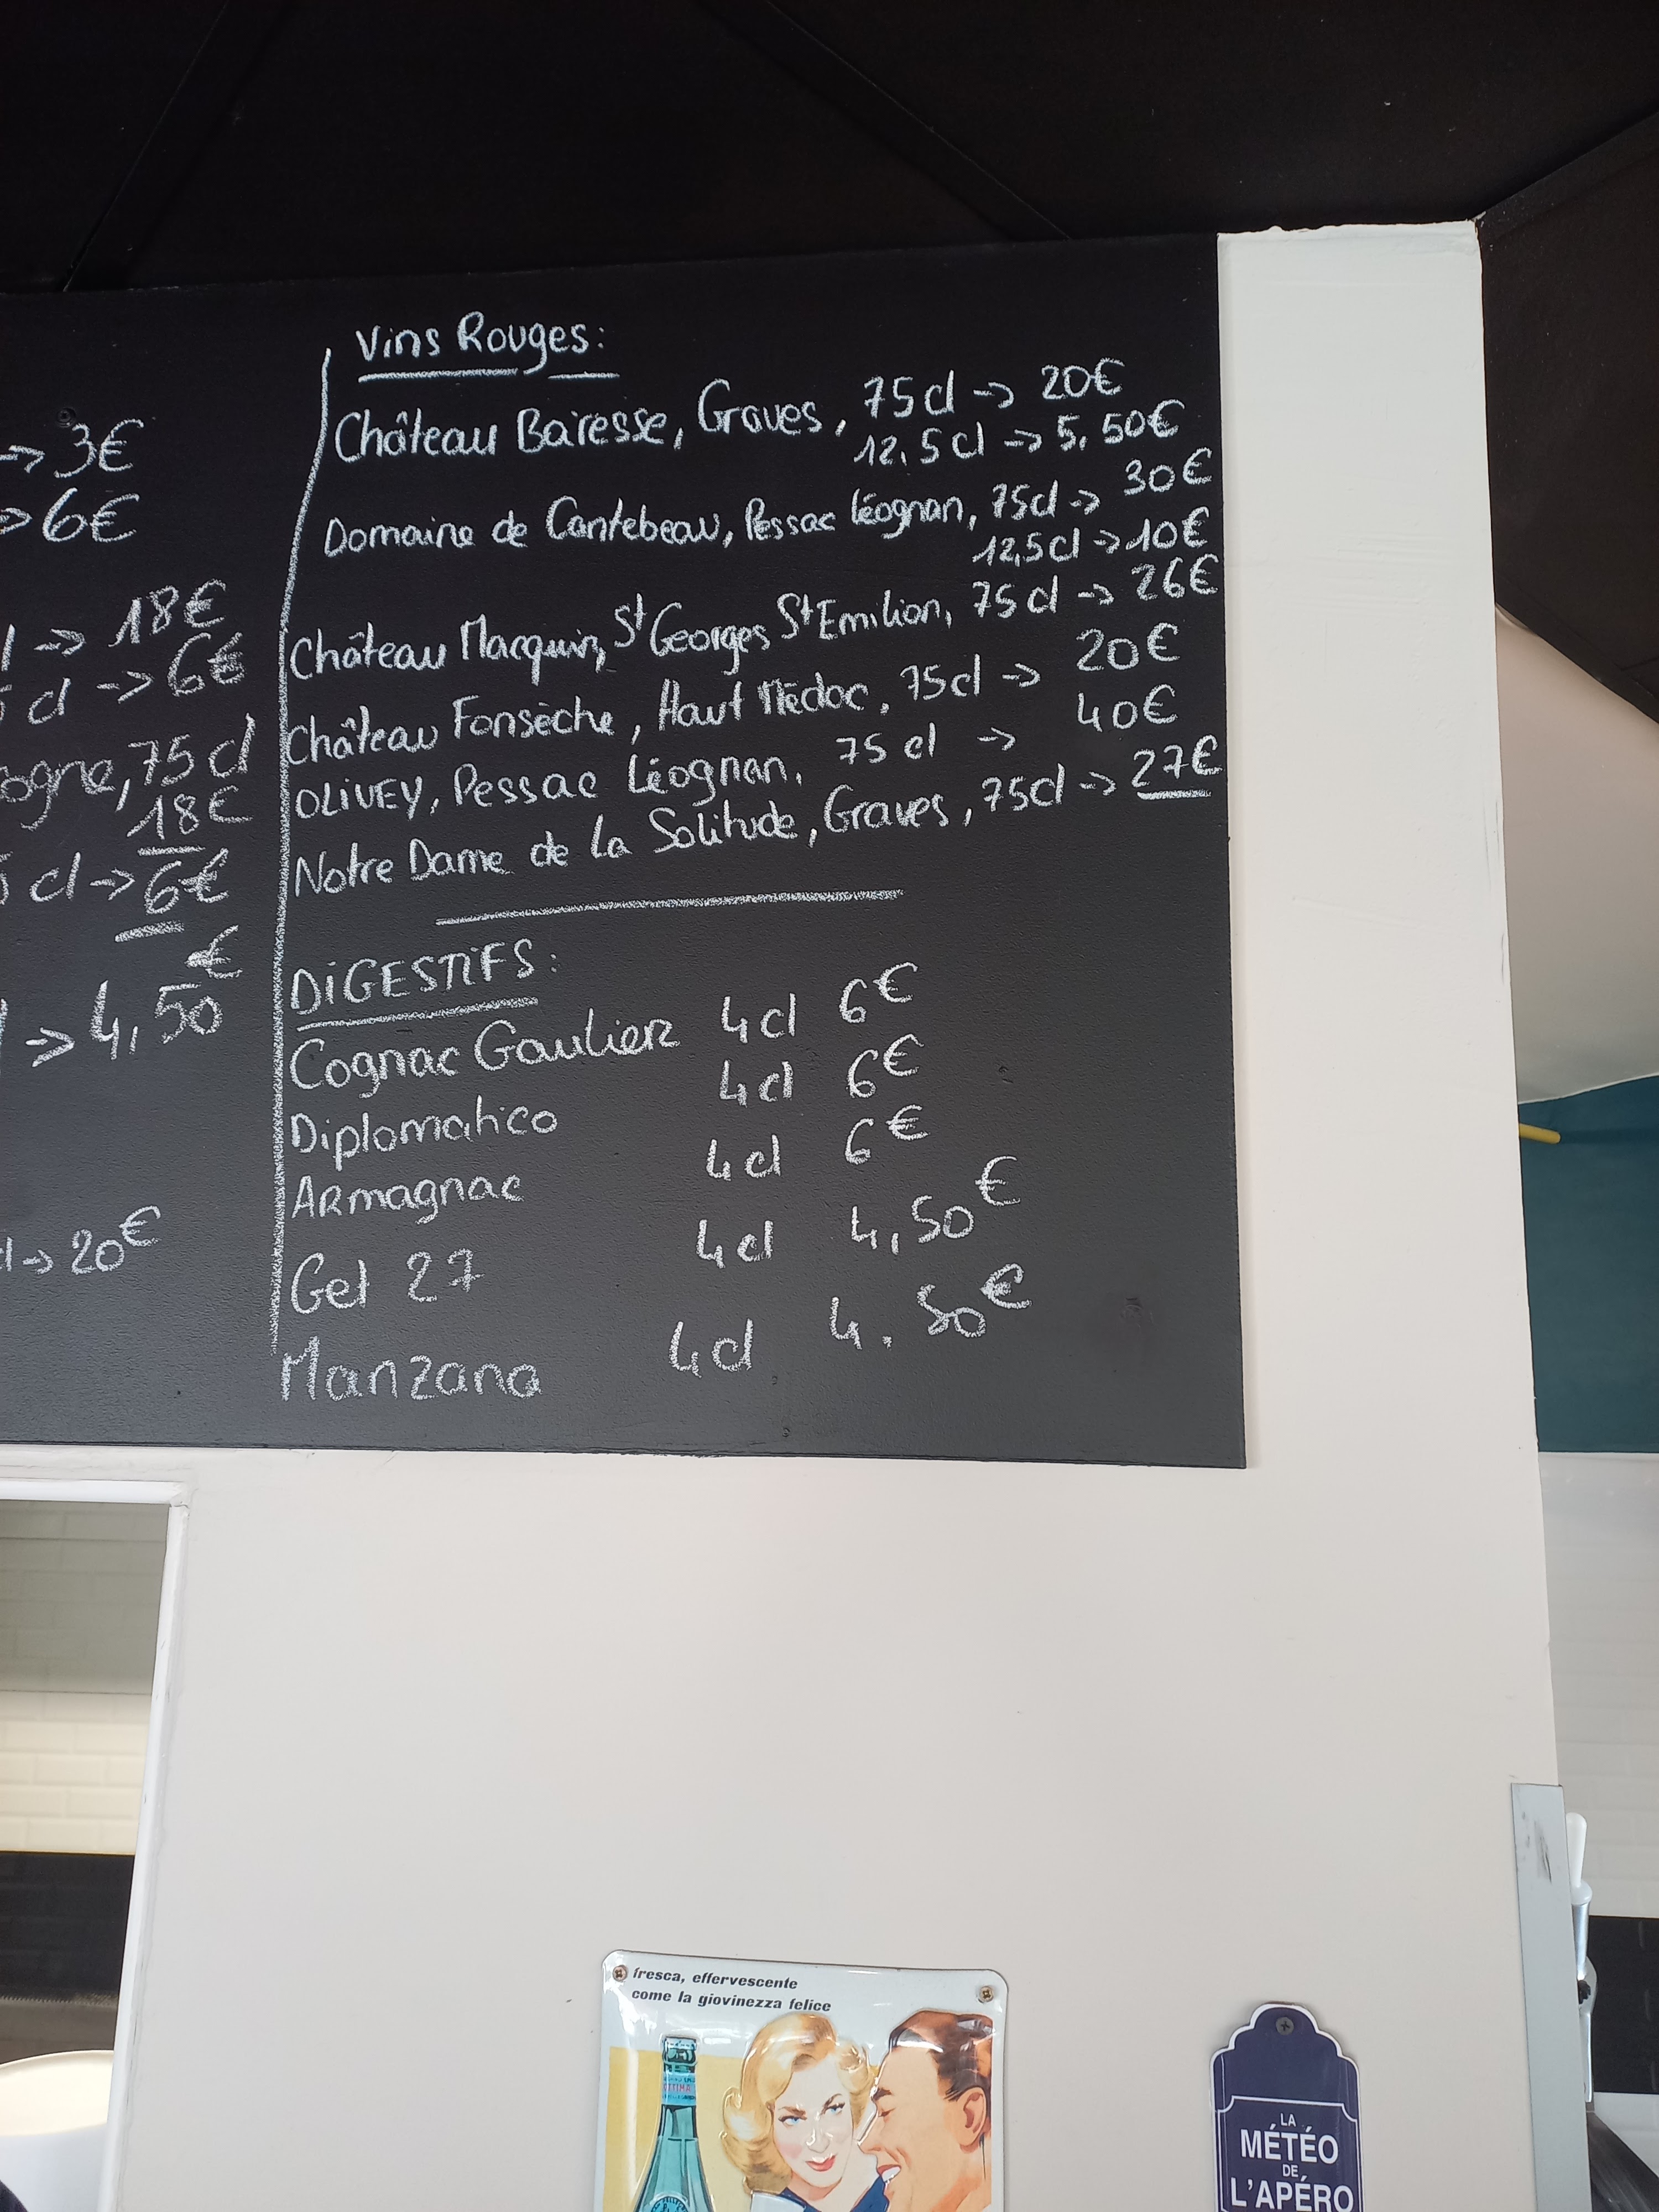 → 3€
→ 6€
→ 18€
cl → 6€
ogne, 75 cl
18€
cl → 6€
€
→ 4,50
→ 20€
Vins Rouges:
Château Baresse, Graves, 75cl → 20€
12,5cl → 5,50€
Domaine de Cantebeau, Pessac Léognan, 75cl → 30€
12,5cl → 10€
Château Macquin, St Georges St Emilion, 75cl → 26€
Château Fonsèche, Haut Médoc, 75cl → 20€
OLIVEY, Pessac Léognan, 75 cl → 40€
Notre Dame de La Solitude, Graves, 75cl → 27€
DIGESTIFS:
Cognac Gaulier 4cl 6€
Diplomatico 4cl 6€
Armagnac 4cl 6€
Get 27 4cl 4,50€
Manzana 4cl 4,50€
fresca, effervescente
come la giovinezza felice
LA
MÉTÉO
DE
L'APÉRO